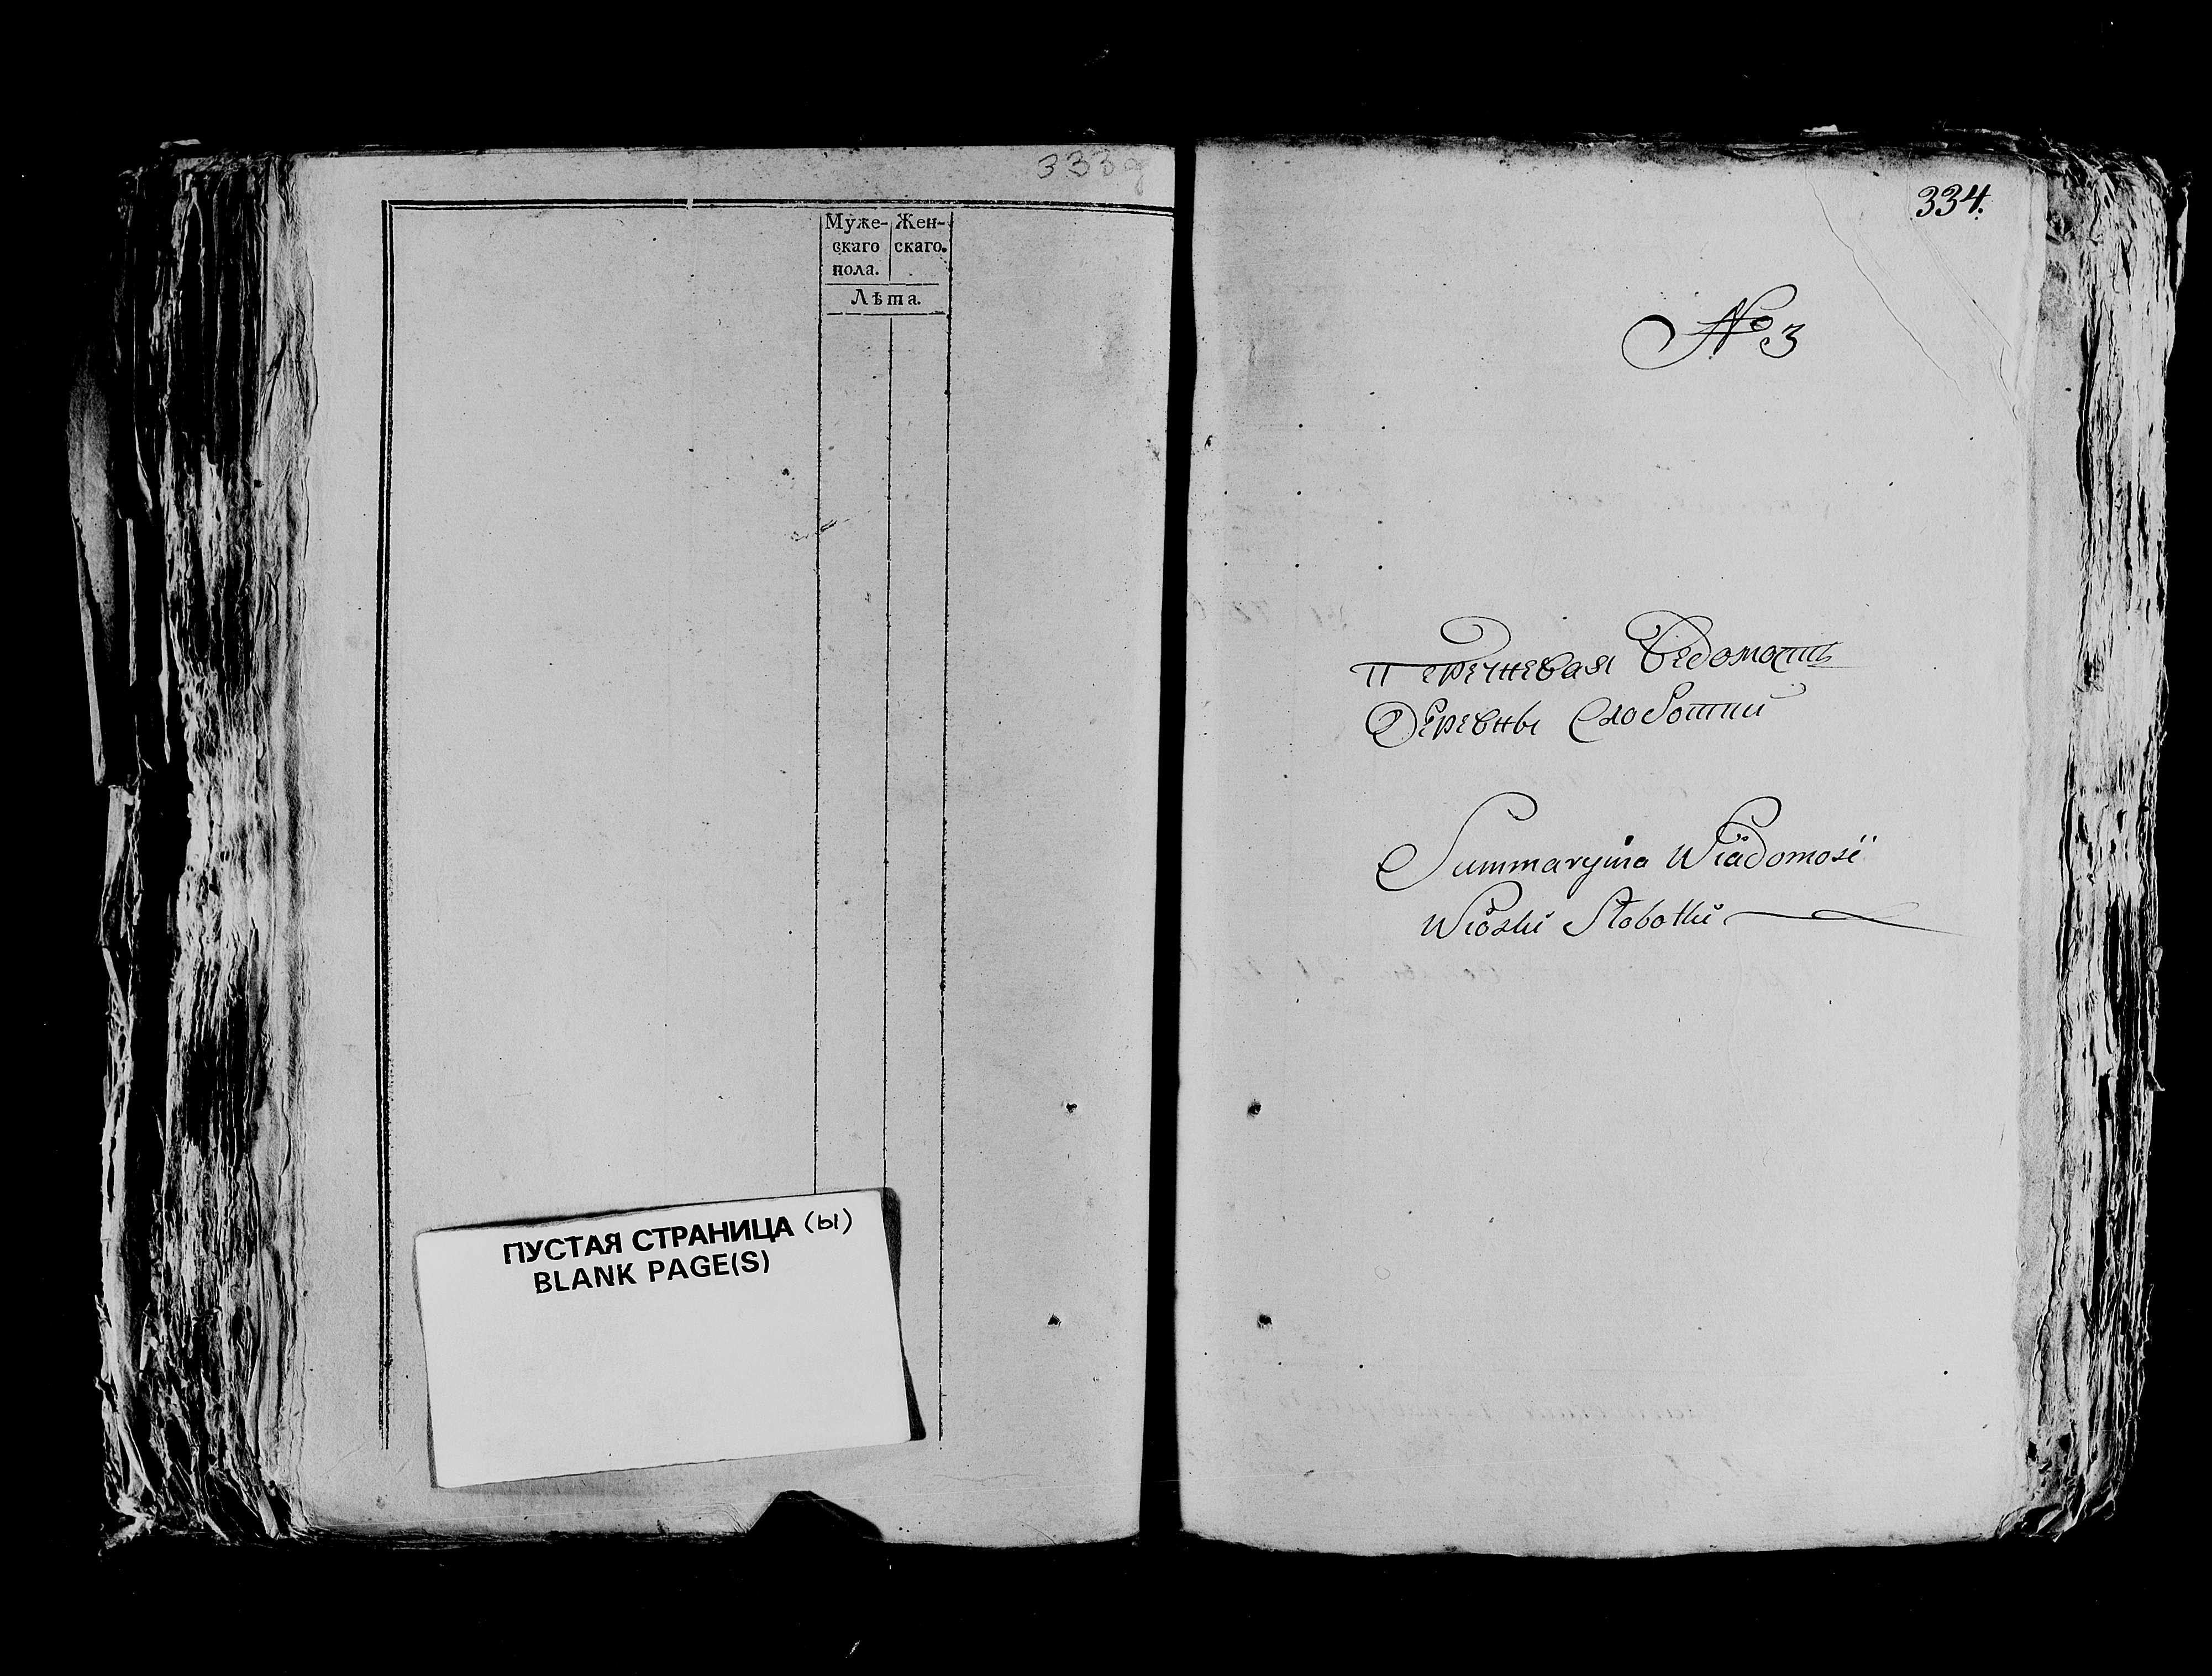 333g
Муже- Жен-
скаго скаго.
пола.
Лѣта.
ПУСТАЯ СТРАНИЦА (ы)
BLANK PAGE(S)
334.
№ 3
Перечневая Ведомость
Деревны Слоботки
Summaryina Wiadomosć
Wioski Słobotki